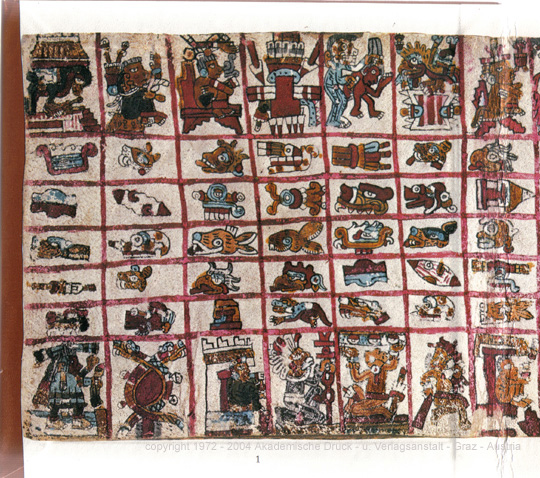 copyright 1972 - 2004 Akademische Druck - u. Verlagsanstalt - Graz - Austria
1